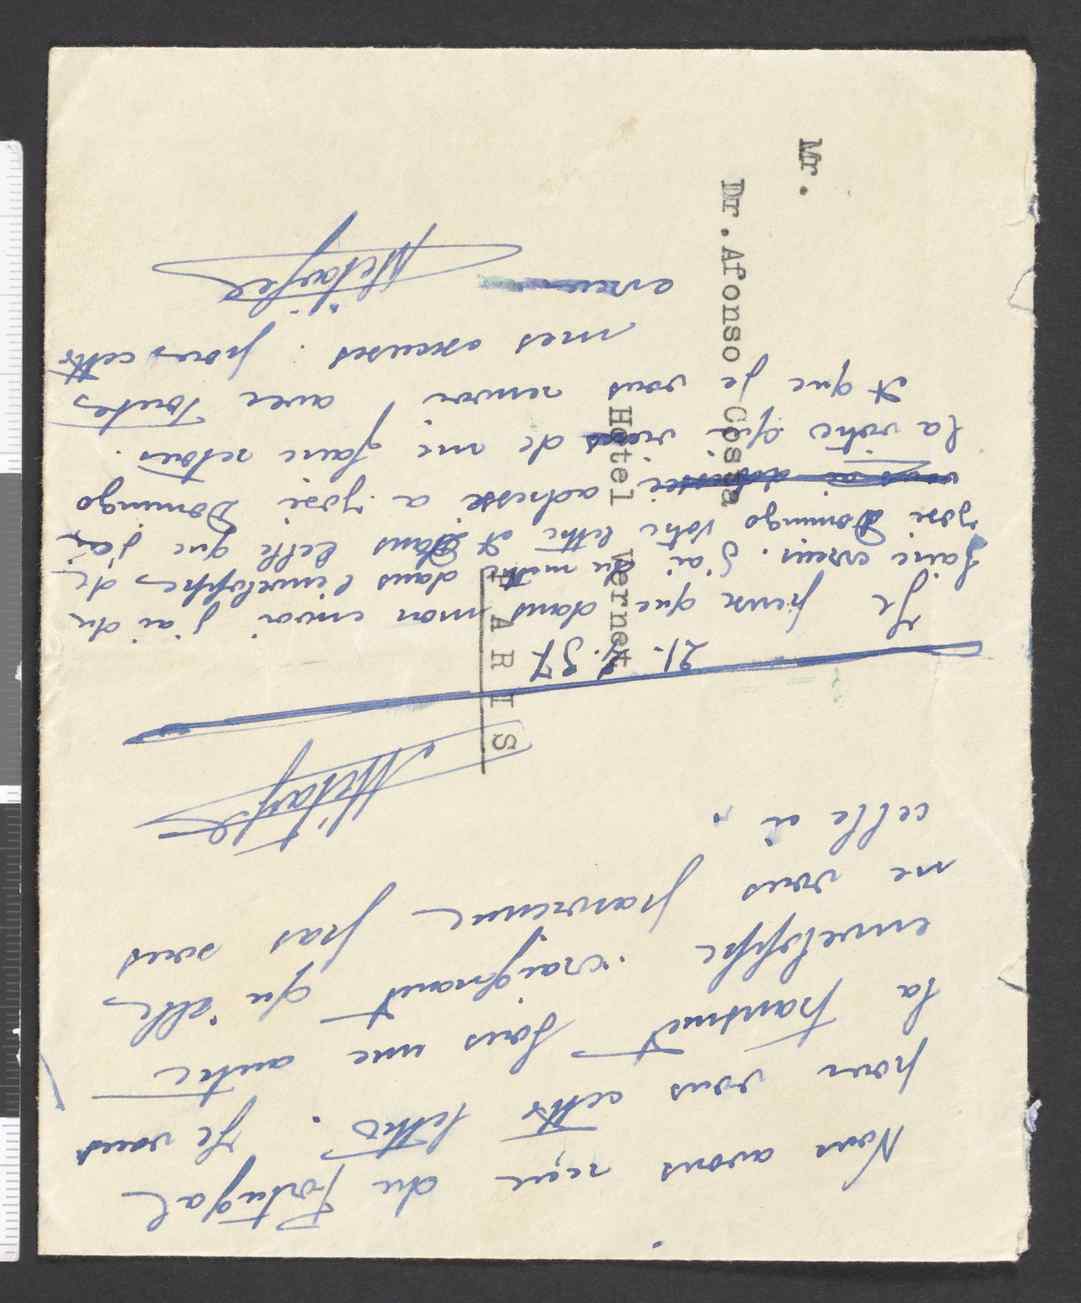 Mr.
Dr. Afonso Costa
Hotel Vernet
PARIS
Nous avons reçu du Portugal
pour vous cette lettre. Je vous
la transmet sous une autre
enveloppe craignant qu'elle
ne vous parvienne pas sous
celle ci.
21. 37
Je pense que dans mon envoi j'ai du
faire erreur. J'ai du mettre dans l'enveloppe de
José Domingo votre lettre et dans celle que j'ai
adressé a José Domingo
la votre qui viens de me faire retour.
et que je vous renvoi avec Toutes
mes excuses pour cette
erreur